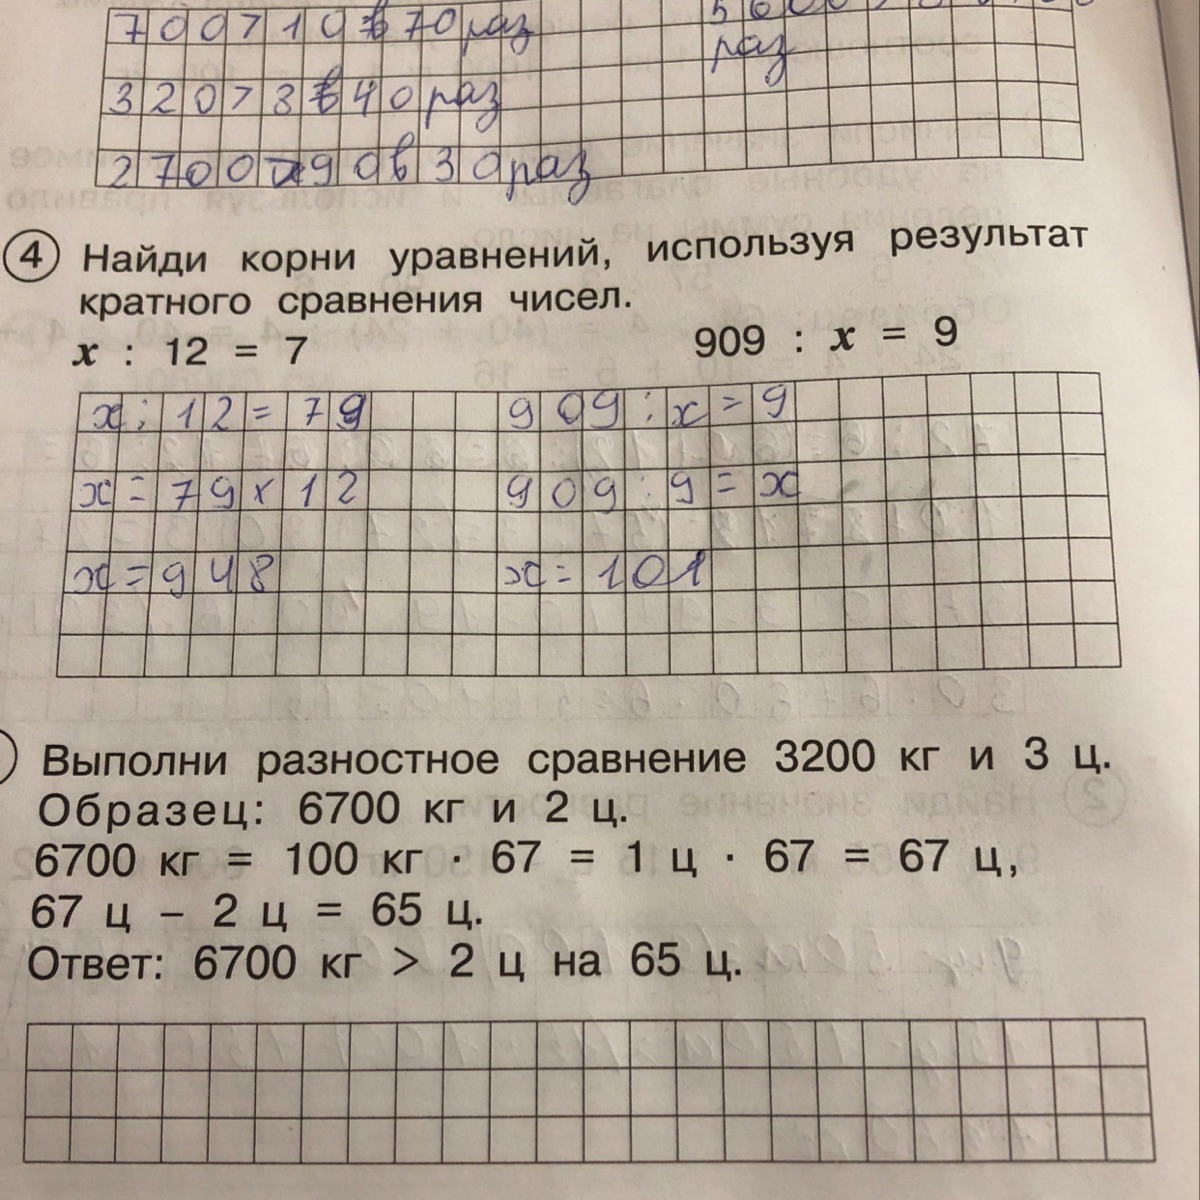 700>10 в 70 раз
раз
320>8 в 40 раз
2700>90 в 30 раз
4 Найди корни уравнений, используя результат
кратного сравнения чисел.
x : 12 = 7
909 : x = 9
x : 12 = 79
909 : x = 9
x = 79 × 12
909 : 9 = x
x = 948
x = 101
Выполни разностное сравнение 3200 кг и 3 ц.
Образец: 6700 кг и 2 ц.
6700 кг = 100 кг · 67 = 1 ц · 67 = 67 ц,
67 ц – 2 ц = 65 ц.
Ответ: 6700 кг > 2 ц на 65 ц.